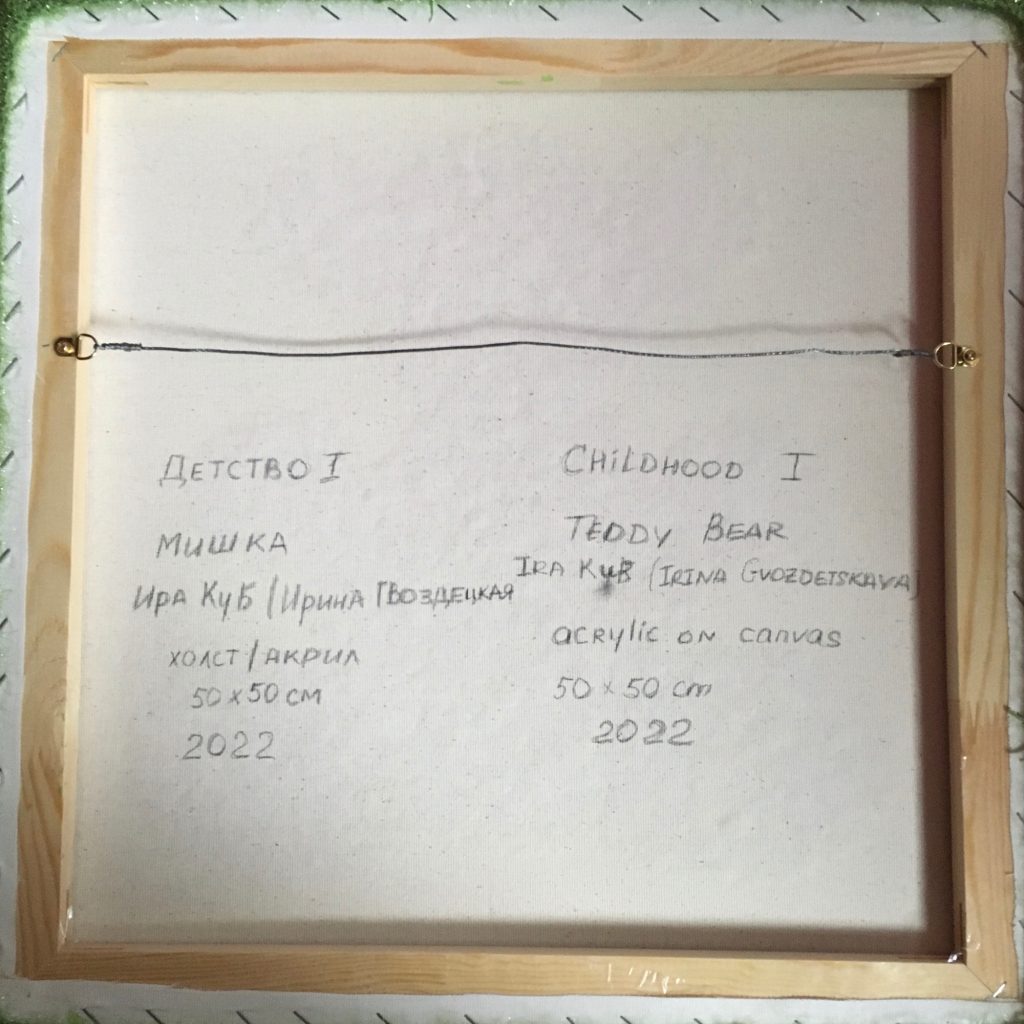 Детство I
Мишка
Ира Куб / Ирина Гвоздецкая
холст / акрил
50 x 50 см
2022
CHiLDHOOD I
TEDDY BEAR
IRA KUB (IRINA GVOZDETSKAYA)
acrylic on canvas
50 x 50 cm
2022